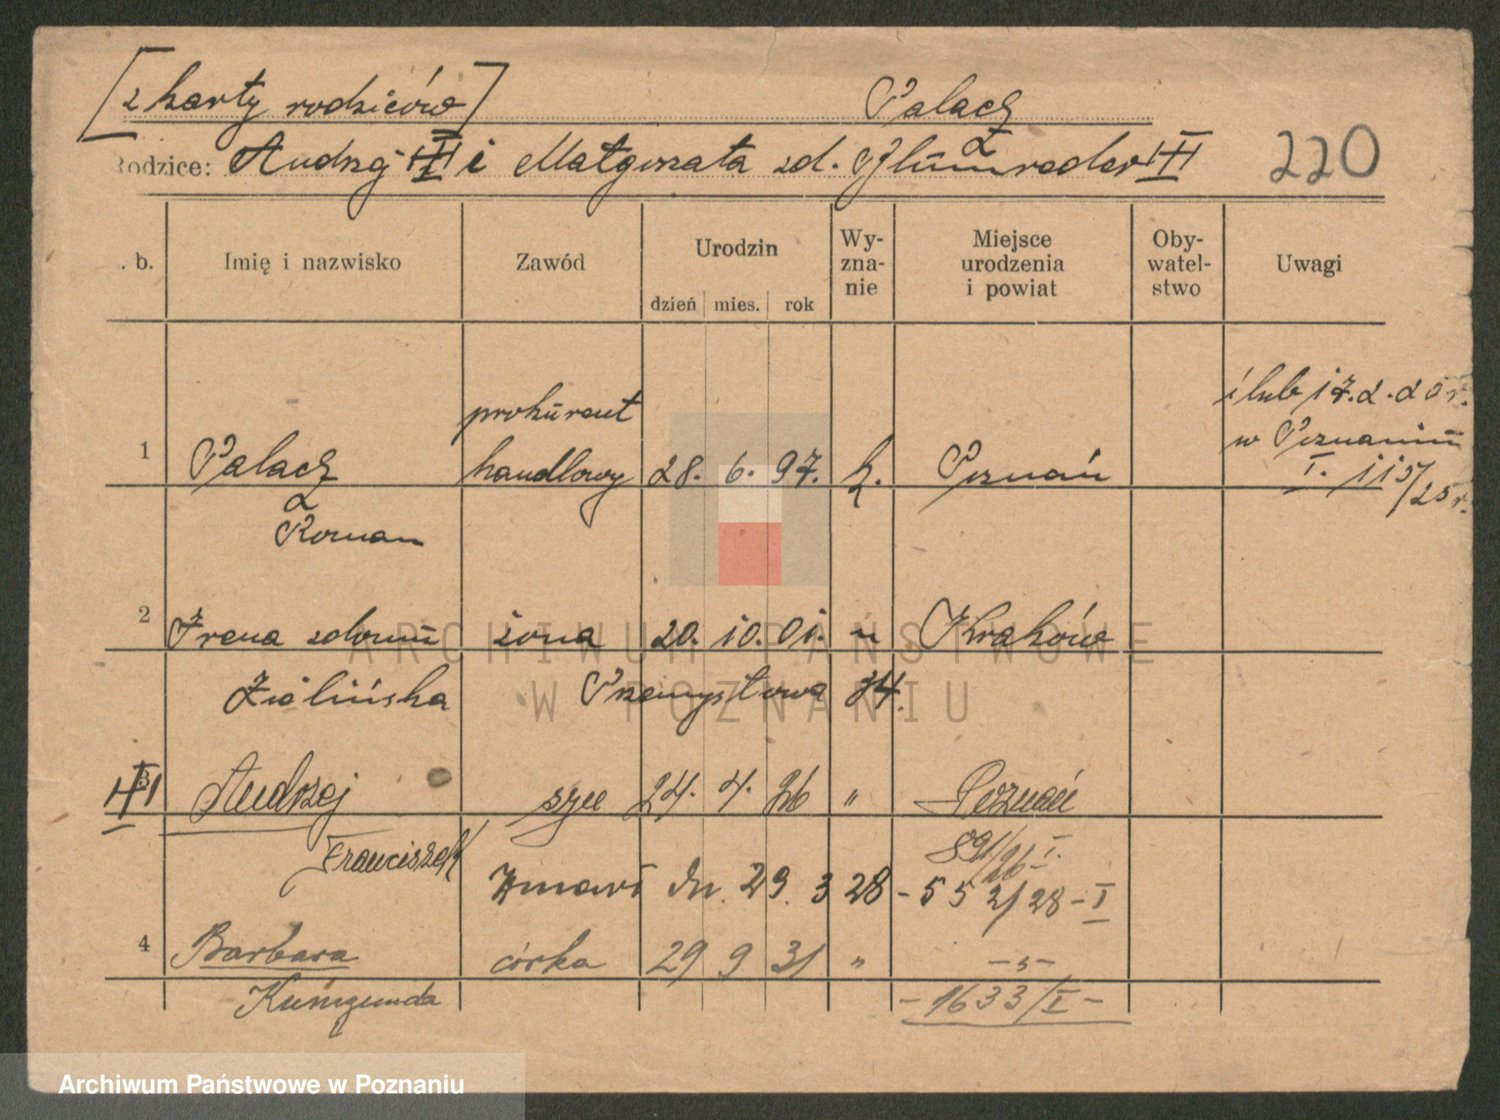 [z karty rodziców]
Palacz
Rodzice: Andrzej III i Małgorzata zd.
220
. b.
Imię i nazwisko
Zawód
Urodzin
dzień mies. rok
Wy-
zna-
nie
Miejsce
urodzenia
i powiat
Oby-
watel-
stwo
Uwagi
1
Palacz
Roman
prokurent
handlowy
28. 6. 97.
k.
Poznań
ślub 17.2.25 r.
w Poznaniu
I. 115/25 r.
2
Irena z domu
Zielińska
żona
20. 10. 01.
"
Kraków
Przemysłowa 34.
3
Andrzej
Franciszek
syn
24. 4. 26
"
Poznań
891/26 I.
zmarł dn. 29. 3 28 - 552/28 - I
4
Barbara
Kunegunda
córka
29 9 31
"
- " -
- 1633/I -
ARCHIWUM PAŃSTWOWE
W POZNANIU
Archiwum Państwowe w Poznaniu